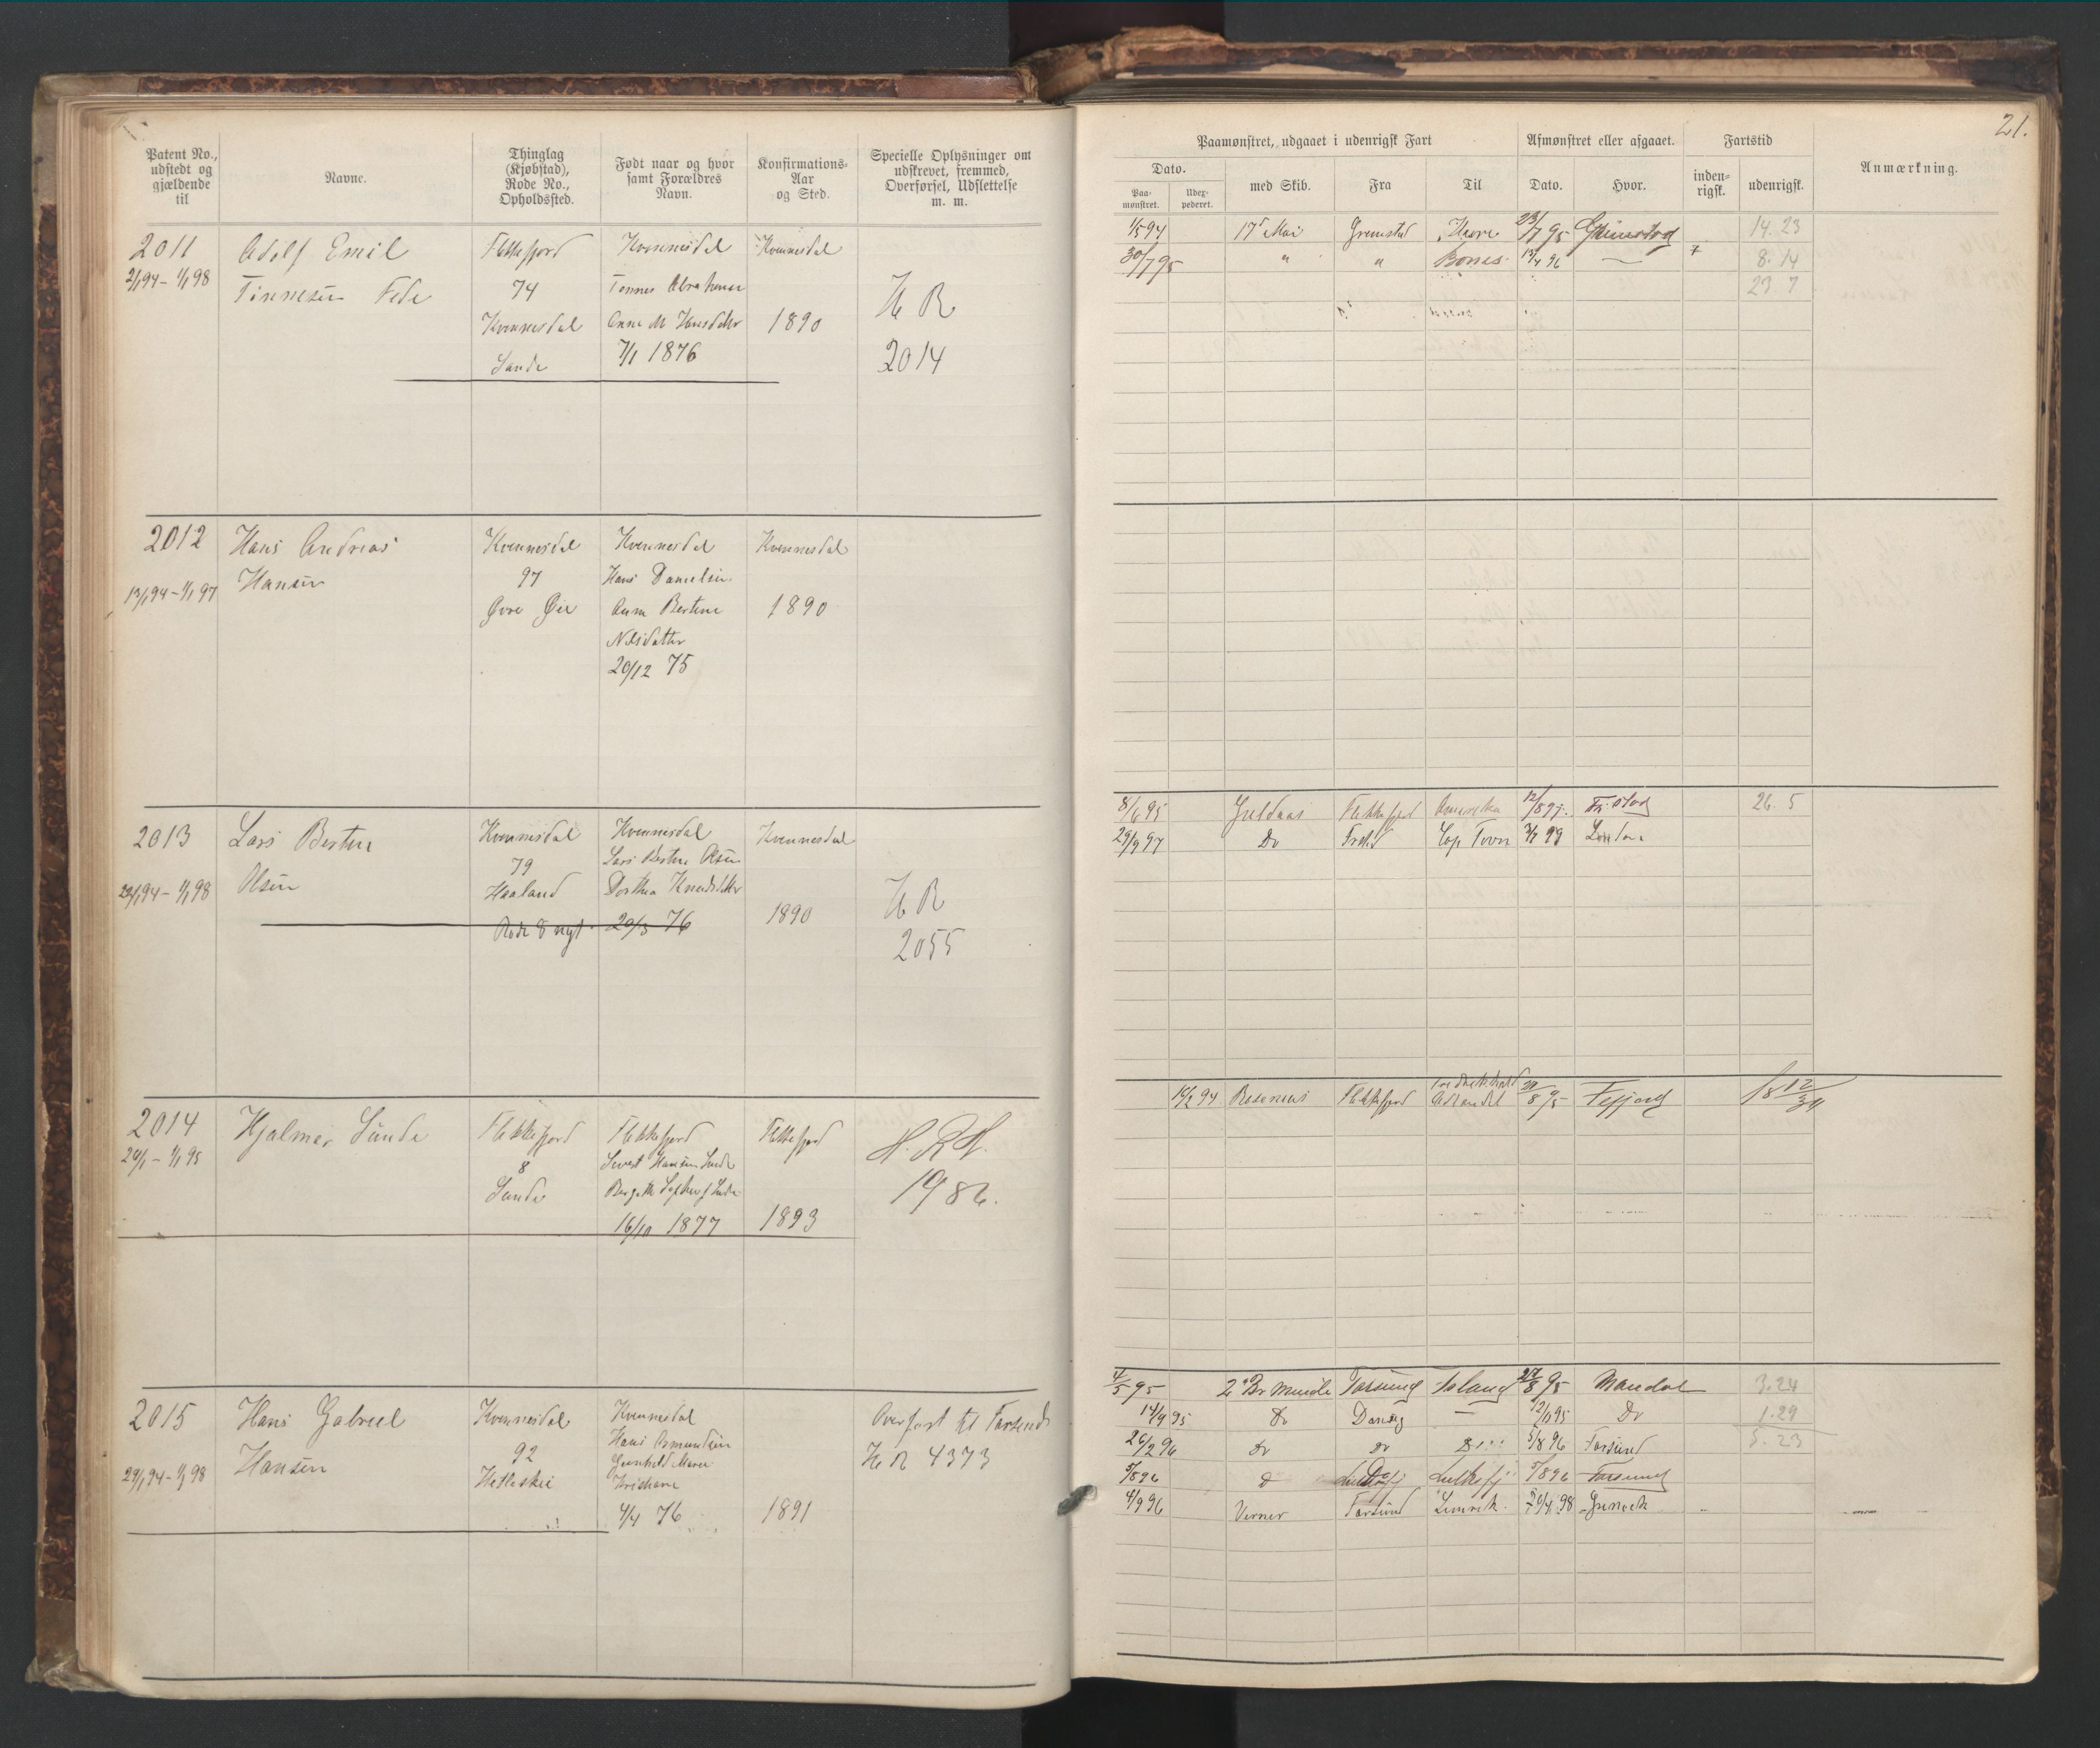 21.
Patent No., udstedt og gjældende til
Navne.
Thinglag (Kjøbstad), Rode No., Opholdssted.
Født naar og hvor samt Forældres Navn.
Konfirmations-Aar og Sted.
Specielle Oplysninger om udskrevet, fremmed, Overførsel, Udslettelse m. m.
Paamønstret, udgaaet i udenrigsk Fart
Dato.
Paa-mønstret.
Uder-pederet.
med Skib.
Fra
Til
Afmønstret eller afgaaet.
Dato.
Hvor.
Fartstid
inden-rigsk.
udenrigsk.
Anmærkning.
2011
2/1 94 – 1/1 98
Adolf Emil
Tønnesen Fede
Flekkefjord
74
Kvennesdal
Sande
Kvennesdal
Tønnes Abrahamsen
Anna M Hansdatter
7/1 1876
Kvennesdal
1890
H R
2014
1/5 94 17de Mai Grimstad Havre 23/7 95 Grimstad 14. 23
30/7 95 " " 13/4 96 — 8. 14
23 7
2012
13/1 94 – 1/1 97
Hans Andreas
Hansen
Kvennesdal
97
Øvre Øie
Kvennesdal
Hans Danielsen
Anna Bertine
Nilsdatter
20/12 75
Kvennesdal
1890
2013
22/1 94 – 1/1 98
Lars Bertin
Olsen
Kvennesdal
79
Haaland
Rode 8 nyt
Kvennesdal
Lars Bertin Olsen
Dorthea Knudsdatter
20/3 76
Kvennesdal
1890
H R
2055
8/6 95 Guldaas Flekkefjord Amerika 12/8 97 Fr.stad 26. 5
29/9 97 Do Frdst Cap Town 3/7 99 London
2014
24/1 – 1/1 95
Hjalmar Sunde
Flekkefjord
8
Sunde
Flekkefjord
Sivert Hansen Sunde
16/10 1877
Flekkefjord
1893
H. R. H.
1986.
16/2 94 Rosenius Flekkefjord 20/8 95
18 12/30
2015
29/1 94 – 1/1 98
Hans Gabriel
Hansen
Kvennesdal
92
Hetleskei
Kvennesdal
Hans Osmundsen
Gunhild Maria
Kristiane
4/4 76
1891
Overført til Farsund
H R 4373
4/5 95 Farsund Island 27/8 95 Mandal 3.24
14/9 95 Do Danzig — 12/11 95 Do 1.29
26/2 96 Do Do 5/8 96 Farsund 5. 23
5/8 96 D 5/8 96 Farsund
4/9 96 Verner Farsund Limerik 20/4 98 Grenock